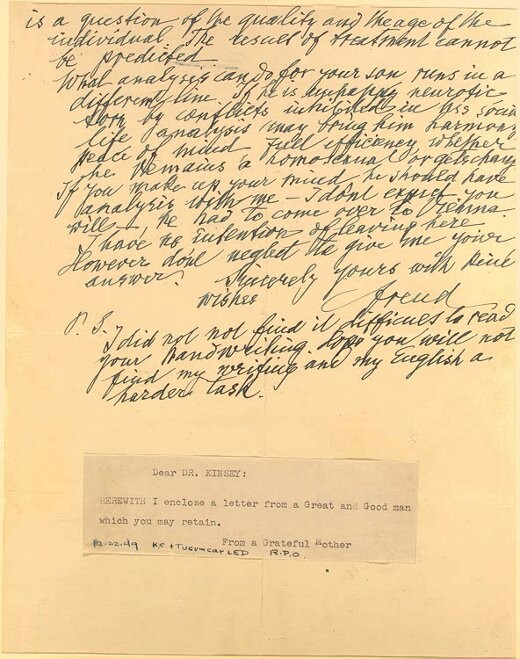 is a question of the quality and the age of the
individual. The result of treatment cannot
be predicted.
What analysis can do for your son runs in a
different line. If he is unhappy, neurotic,
torn by conflicts, inhibited in his social
life, analysis may bring him harmony,
peace of mind, full efficiency, whether
he remains a homosexual or gets chang
If you make up your mind he should have
analysis with me — I dont expect you
will —, he had to come over to Vienna.
I have no intention of leaving here.
However dont neglect to give me your
answer.
Sincerely yours with kind
wishes
Freud
P. S. I did not not find it difficult to read
your handwriting. Hope you will not
find my writing and my English a
harder task.
Dear DR. KINSEY:
HEREWITH I enclose a letter from a Great and Good man
which you may retain.
From a Grateful Mother
12-22-49 R.P.O.